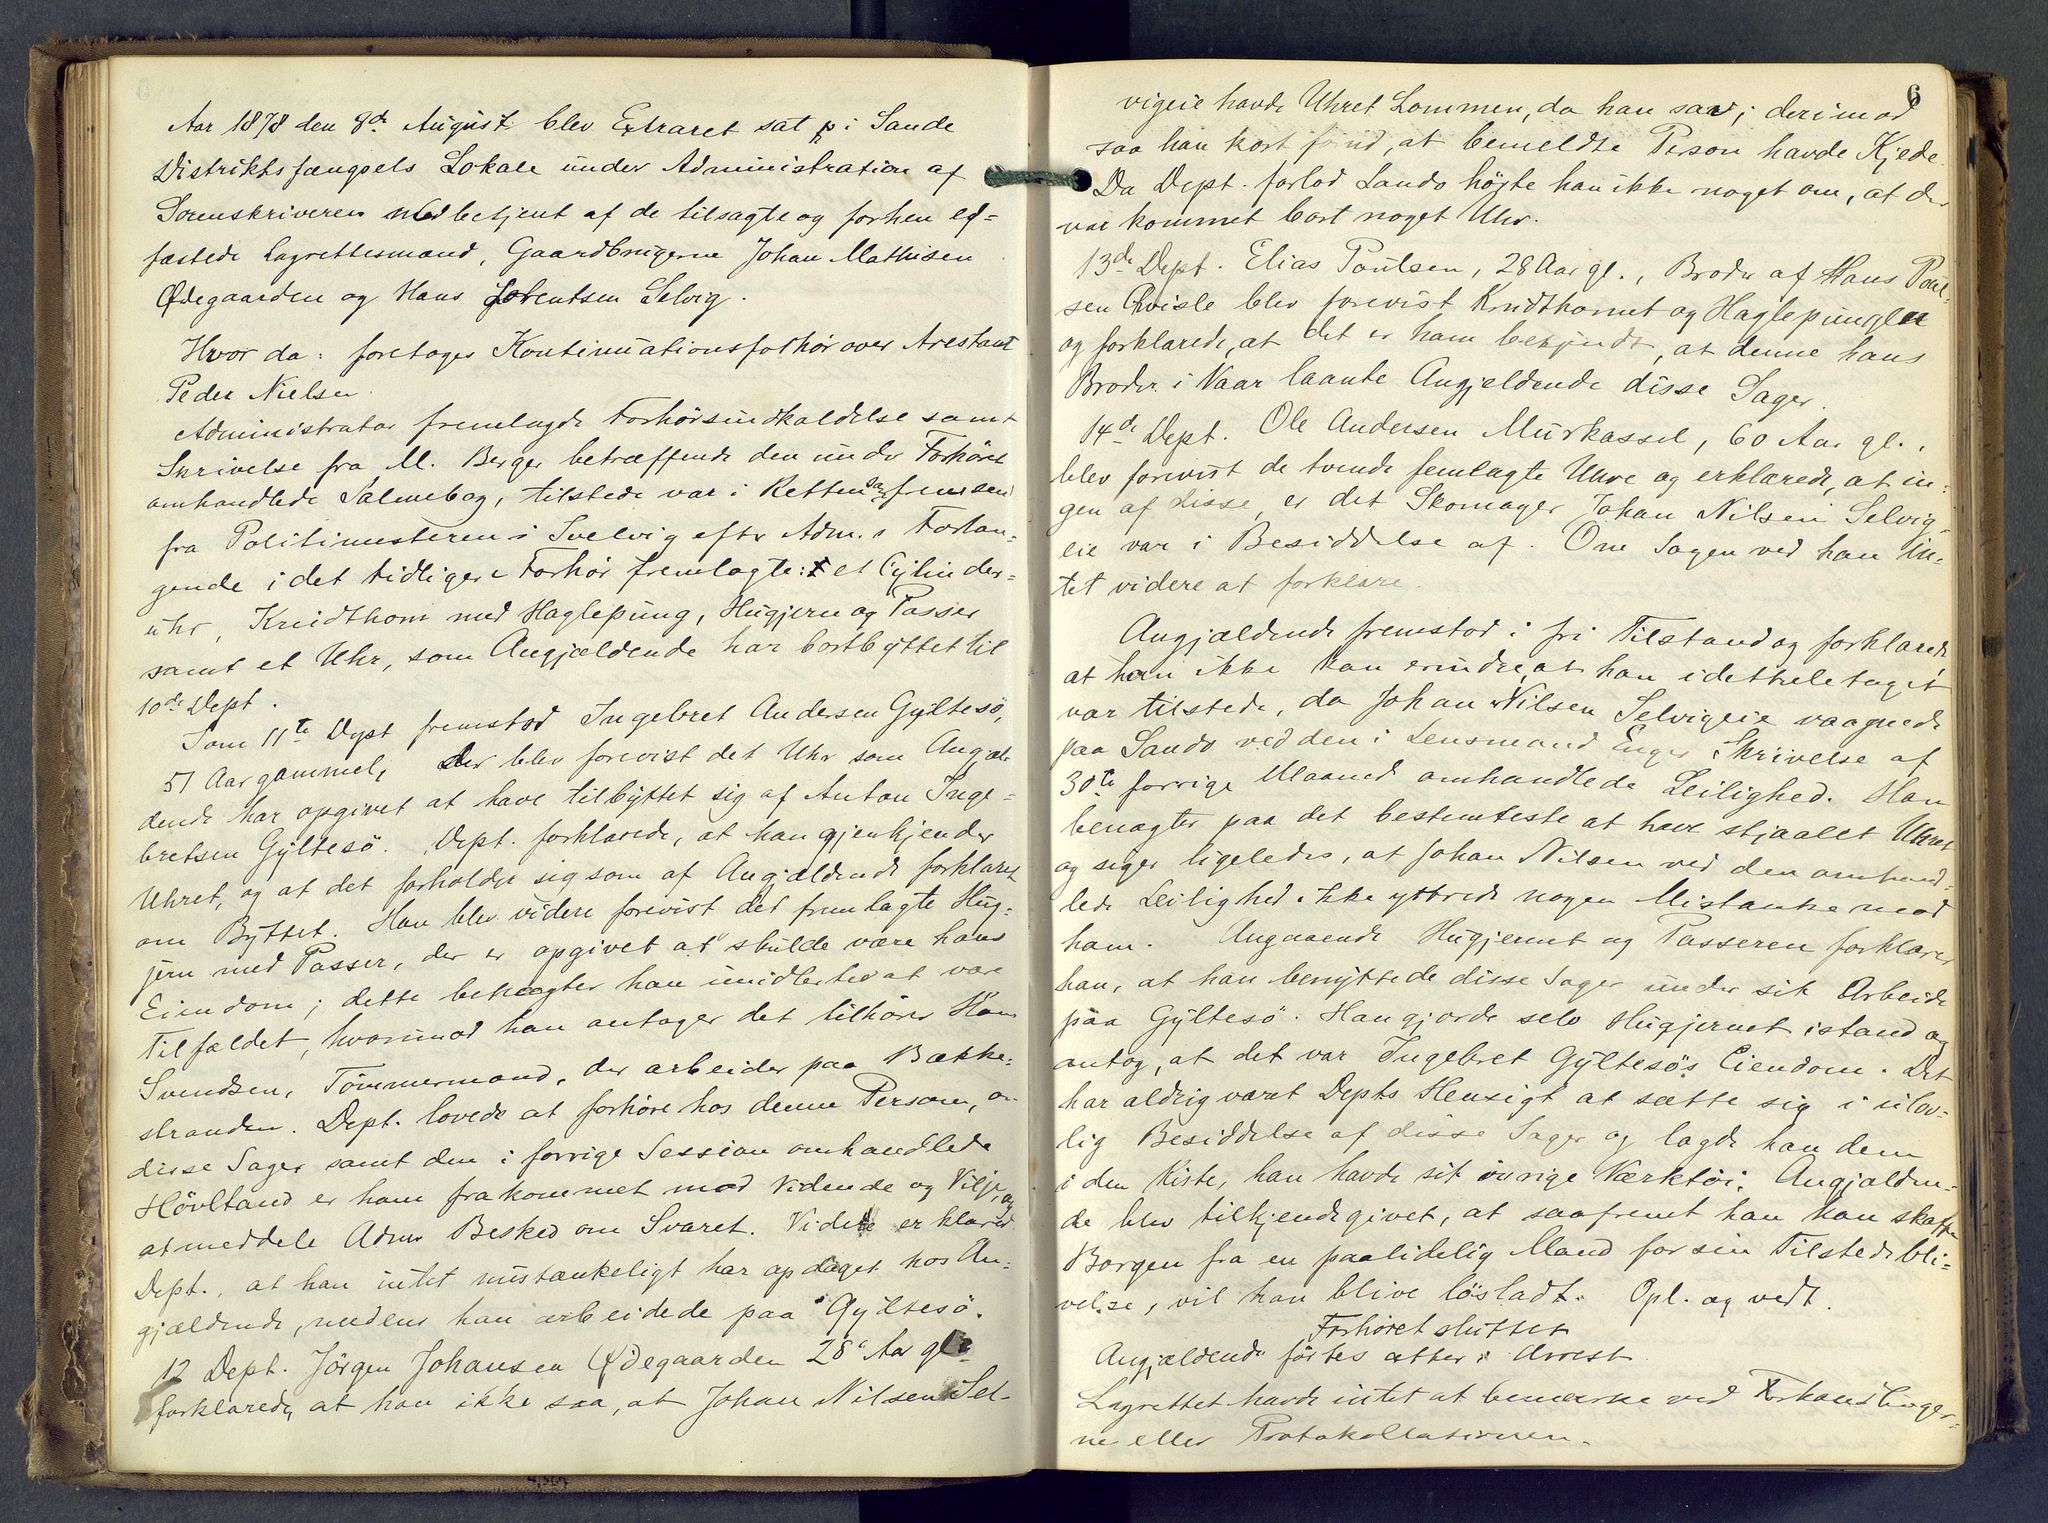 Aar 1878 den 8de August blev Extraret sat i Sande
Distriktsfængsels Lokale under Administration af
Sorenskriveren medbetjent af de tilsagte og forhen ed-
fæstede Lagrettesmænd, Gaardbrugerne Johan Mathisen
Ødegaarden og Hans Selvig.
Hvor da: foretoges Kontinuationsforhør over Arestant
Peder Nielsen.
Administrator fremlagde Forhørsindkaldelse samt
Skrivelse fra M. Berger betræffende den under Forhøret
omhandlede Salmebog, tilstede var i Retten
fra Politimesteren i Svelvig efter Adm.s Forlan-
gende i det tidligere Forhør fremlagte: et Cylinder-
uhr, Krudthorn med Haglepung, Hugjern og Passer
samt et Uhr, som Angjældende har bortbyttet til
10de Dept.
Som 11te Dept fremstod Ingebret Andersen Gyltesö,
51 Aar gammel, der blev forevist det Uhr som Angjæl-
dende har opgivet at have tilbyttet sig af Anton Inge-
bretsen Gyltesö. Dept. forklarede, at han gjenkjender
Uhret, og at det forholder sig som af Angjældende forklaret
om Byttet. Han blev videre forevist det fremlagte Hug-
jern med Passer, der er opgivet at skulde være hans
Eiendom; dette benægter han imidlertid at være
Tilfældet, hvorimod han antager det tilhører Hans
Svendsen, Tömmermand, der arbeider paa Bække-
stranden. Dept. lovede at forhöre hos denne Person, om
disse Sager samt den i forrige Session omhandlede
Hövltand er ham frakommet mod Vidende og Vilje, og
at meddele Adm. Besked om Svaret. Videre erklæred
Dept., at han intet mistænkeligt har opdaget hos An-
gjældende, medens han arbeidede paa Gyltesö.
12 Dept. Jörgen Johansen Ødegaarden 28 Aar gl.
forklarede, at han ikke saa, at Johan Nilsen Sel-
6
vigeie havde Uhret Lommen, da han sov; derimod
saa han kort forud, at bemeldte Person havde Kjede.
Da Dept. forlod Sando højte han ikke noget om, at der
var kommet bort noget Uhr.
13de Dept. Elias Poulsen, 28 Aar gl., Broder af Hans Poul-
sen blev forevist Krudthornet og Haglepungen
og forklarede, at det er ham bekjendt, at denne hans
Broder i Vaar laante Angjeldende disse Sager.
14de Dept. Ole Andersen Murkassel, 60 Aar gl.,
blev forevist de tvende femlagte Uhre og erklærede, at in-
gen af disse er det Skomager Johan Nilsen Selvig-
eie var i Besiddelse af. Om Sagen ved han in-
tet videre at forklare.
Angjældende fremstod i fri Tilstand og forklarede,
at han ikke kan erindre, at han i det hele taget
var tilstede, da Johan Nilsen Selvigeie vaagnede
paa Sando ved den i Lensmand Enger Skrivelse af
30te forrige Maaned omhandlede Leilighed. Han
benægter paa det bestemteste at have stjaalet Uhret
og siger ligeledes, at Johan Nilsen ved den omhand-
lede Leilighed ikke yttrede nogen Mistanke mod
ham. Angaaende Hugjernet og Passeren forklarer
han, at han benyttede disse Sager under sit Arbeide
paa Gyltesö. Han gjorde selv Hugjernet istand og
antog, at det var Ingebret Gyltesös Eiendom. Det
har aldrig været Depts Hensigt at sætte sig i ulov-
lig Besiddelse af disse Sager og lagde han dem
i den Kiste, han havde sit övrige Værktöi. Angjælden-
de blev tilkjendegivet, at saafremt han kan skaffe
Borgen fra en paalidelig Mand for sin Tilstedebli-
velse, vil han blive lösladt. Opl. og vedt.
Forhöret sluttet
Angjældende förtes atter i Arrest
Lagrettet havde intet at bemærke ved Forhandlinger-
ne eller Protokollationen.